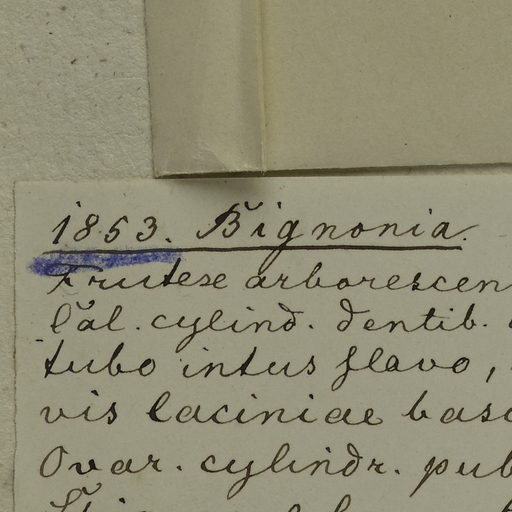 1853. Bignonia.
Frutesc arborescen
Cal. cylind. dentib.
tubo intus flavo,
vis laciniae basi
Ovar. cylindr. pub